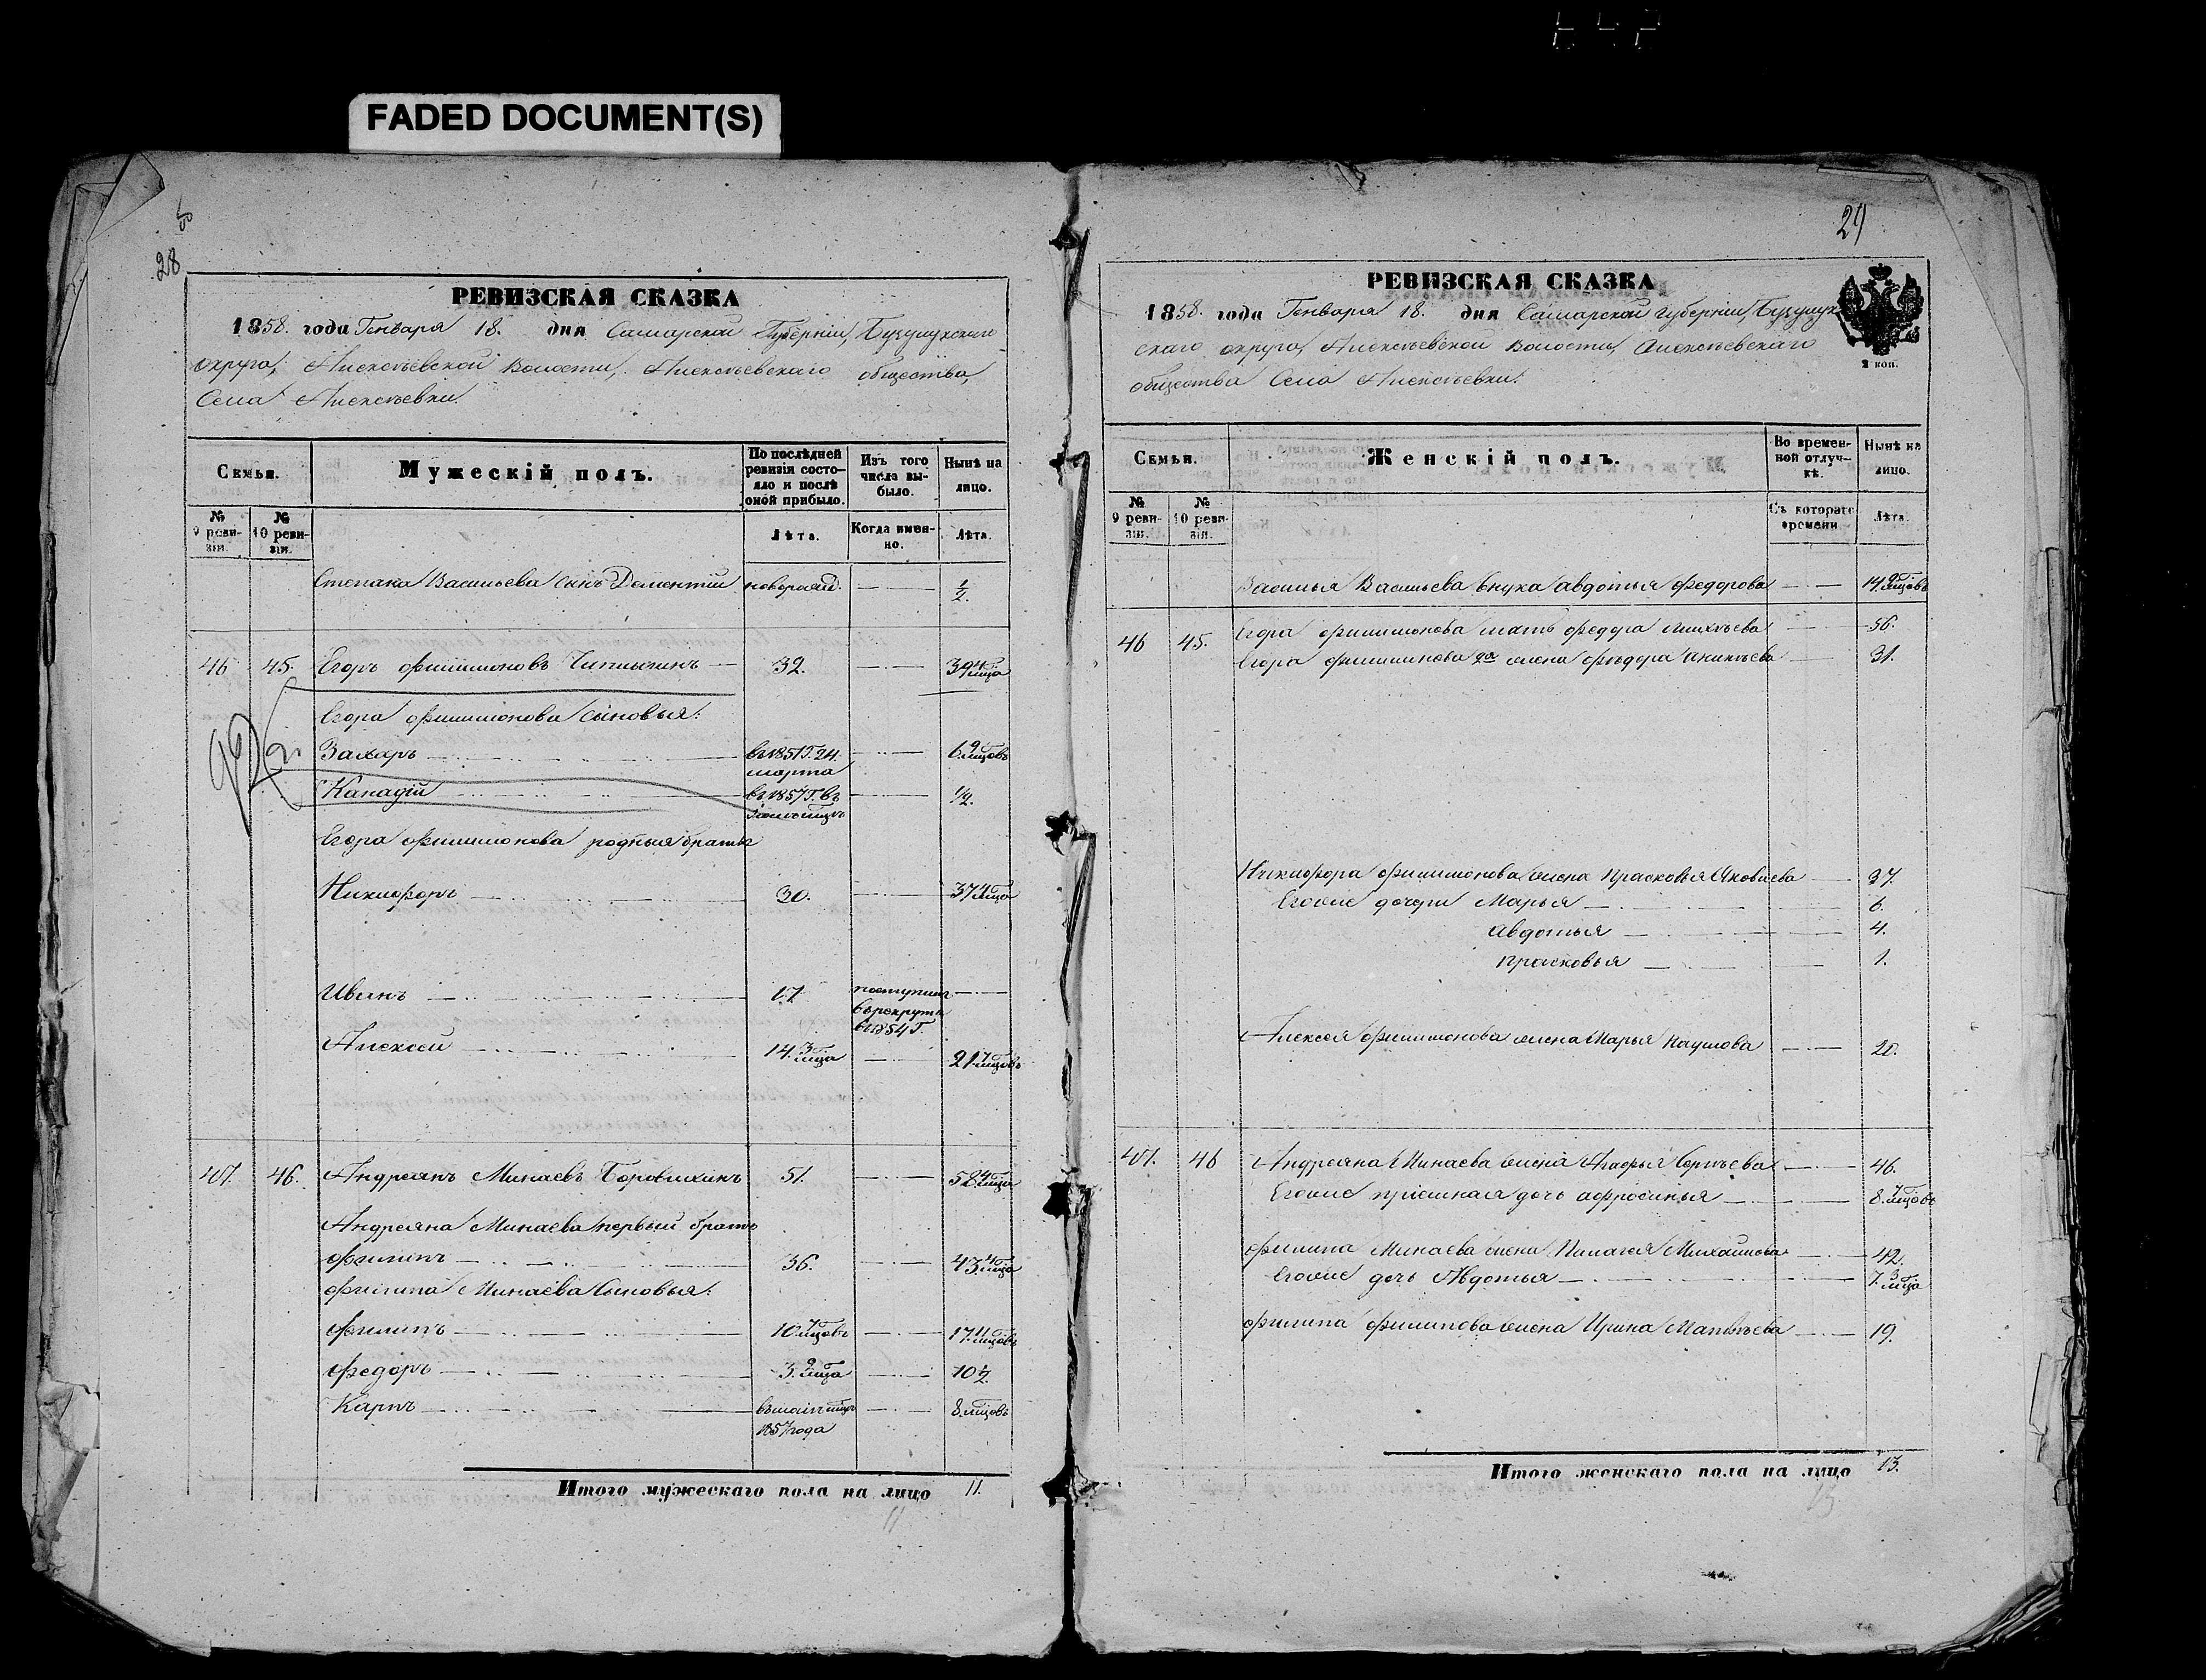 FADED DOCUMENT(S)
28
РЕВИЗСКАЯ СКАЗКА
1858. года Генваря 18. дня Самарской Губерніи, Бузулукскаго
округа, Алексѣевской Волости, Алексѣевскаго общества,
Села Алексѣевки.
Семьи.
Мужескій полъ.
По послѣдней ревизіи состояло и послѣ оной прибыло.
Изъ того числа выбыло.
Нынѣ на лицо.
№ 9 ревизіи.
№ 10 ревизіи.
Лѣта.
Когда именно.
Лѣта.
Степана Васильева сынъ Дементій новорожд. 1/2.
46 45. Егоръ Филимоновъ 32. 39 4 мца
Егора Филимонова сыновья:
Захаръ въ 1851 Г. 24. марта 6. 9 мцовъ
въ 1857 Г. въ 1/2.
Егора Филимонова родныя братья
Никифоръ 30. 37 4 мца
Иванъ 17 поступилъ въ рекруты въ 1854 Г.
Алексей 14. 3 мца 21 7 мцовъ
47. 46. Андреянъ Минаевъ 51. 58. 4 мца
Андреяна Минаева первый братъ
Филипъ 36. 43. 4 мца
Филипа Минаева сыновья:
Филипъ 10. 7 мцовъ 17. 11 мцовъ
Федоръ 3. 2 мца 10 1/2.
Карпъ въ маіѣ мцѣ 1857 года 8 мцовъ
Итого мужескаго пола на лицо 11.
11
29
РЕВИЗСКАЯ СКАЗКА
1858. года Генваря 18. дня Самарской губерніи, Бузулук
скаго округа, Алексѣевской волости, Алексѣевскаго
общества Села Алексѣевки.
2 коп.
Семьи.
Женскій полъ.
Во временной отлучкѣ.
Нынѣ на лицо.
№ 9 ревизіи.
№ 10 ревизіи.
Съ котораго времени.
Лѣта.
Василья Васильева внука Авдотья Федорова 14. 9 мцовъ
46 45. Егора Филимонова мать Федора 56.
Егора Филимонова 2я жена Федора 31.
Никифора Филимонова жена Прасковья Яковлева 37.
Егоже дочери Марья 6.
Авдотья 4.
Прасковья 1.
Алексея Филимонова жена Марья Наумова 20.
47. 46 Андреяна Минаева жена Агафья Сергѣева 46.
Егоже пріемная дочь Афросинья 8. 7 мцовъ
Филипа Минаева жена Пилагея Михайлова 42.
Егоже дочь Авдотья 7. 3 мца
Филипа Филипова жена Ирина Матвѣева 19.
Итого женскаго пола на лицо 13.
13